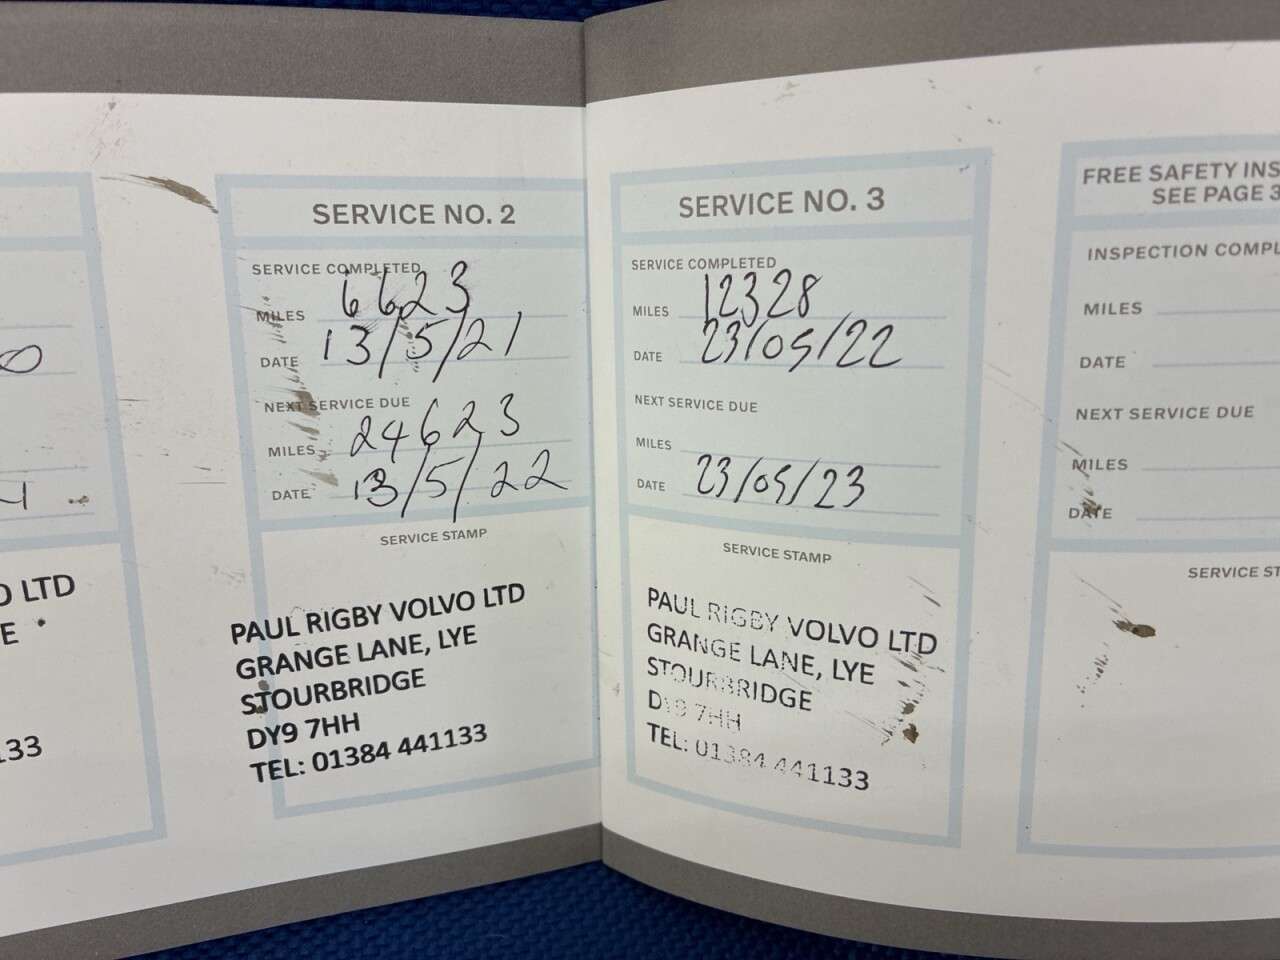 O
4
O LTD
E
133
SERVICE NO. 2
SERVICE COMPLETED
MILES 6623
DATE 13/5/21
NEXT SERVICE DUE
MILES 24623
DATE 13/5/22
SERVICE STAMP
PAUL RIGBY VOLVO LTD
GRANGE LANE, LYE
STOURBRIDGE
DY9 7HH
TEL: 01384 441133
SERVICE NO. 3
SERVICE COMPLETED
MILES 12328
DATE 23/05/22
NEXT SERVICE DUE
MILES
DATE 23/05/23
SERVICE STAMP
PAUL RIGBY VOLVO LTD
GRANGE LANE, LYE
STOURBRIDGE
DY9 7HH
TEL: 01384 441133
FREE SAFETY INS
SEE PAGE 3
INSPECTION COMPL
MILES
DATE
NEXT SERVICE DUE
MILES
DATE
SERVICE ST